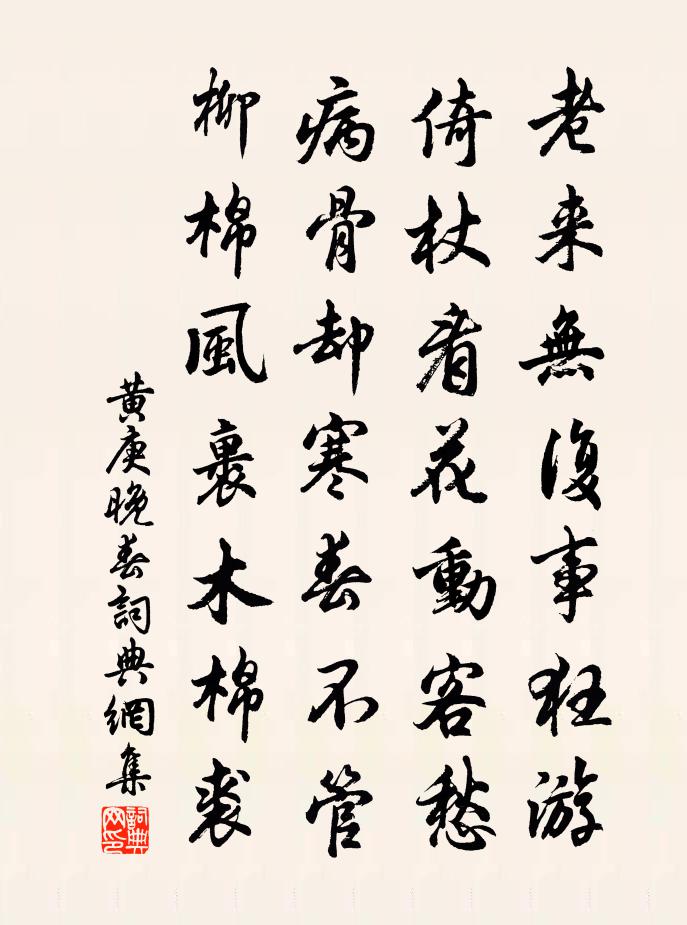 老来無復事狂游
倚杖看花動客愁
病骨却寒春不管
柳棉風裹木棉裘
黄庚晚春詞典網集
詞典網印